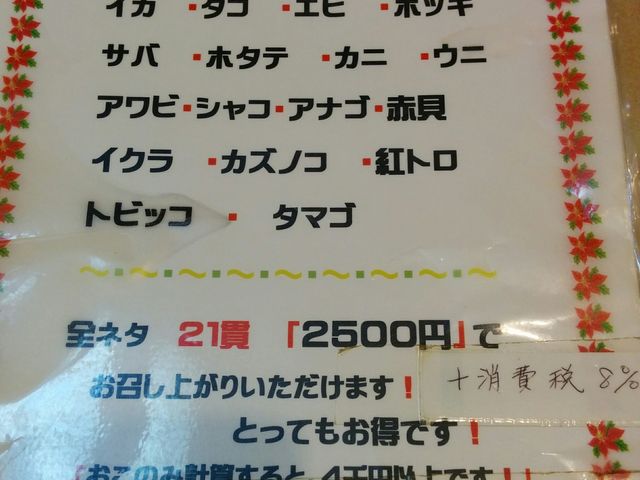 イカ ・タコ ・エビ ・ホッキ
サバ ・ホタテ ・カニ ・ウニ
アワビ・シャコ・アナゴ・赤貝
イクラ ・カズノコ ・紅トロ
トビッコ ・ タマゴ
全ネタ 21貫 「2500円」で
+消費税 8%
お召し上がりいただけます!
とってもお得です!
「おこのみ計算すると、4千円以上です!!